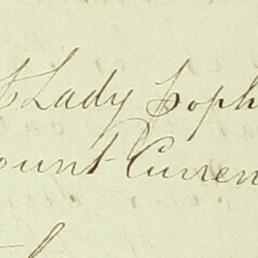 Lady Soph
ount Curren